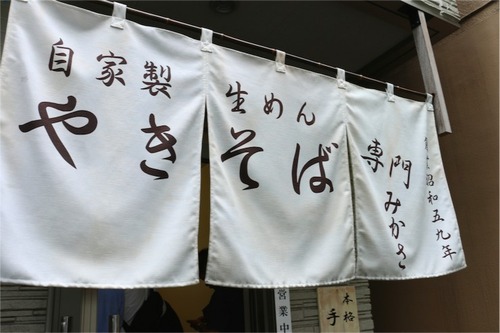 自家製
生めん
やきそば
専門
みかさ
昭和五九年
営業中
本格
手